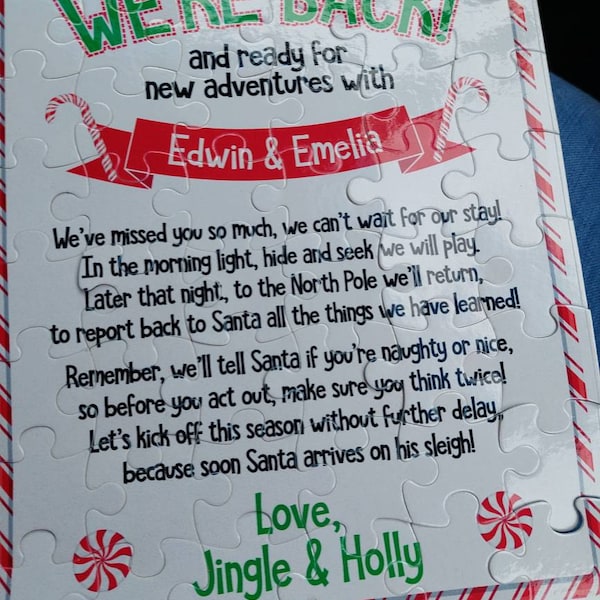 WE'RE BACK!
and ready for
new adventures with
Edwin & Emelia
We've missed you so much, we can't wait for our stay!
In the morning light, hide and seek we will play.
Later that night, to the North Pole we'll return,
to report back to Santa all the things we have learned!
Remember, we'll tell Santa if you're naughty or nice,
so before you act out, make sure you think twice!
Let's kick off this season without further delay,
because soon Santa arrives on his sleigh!
Love,
Jingle & Holly